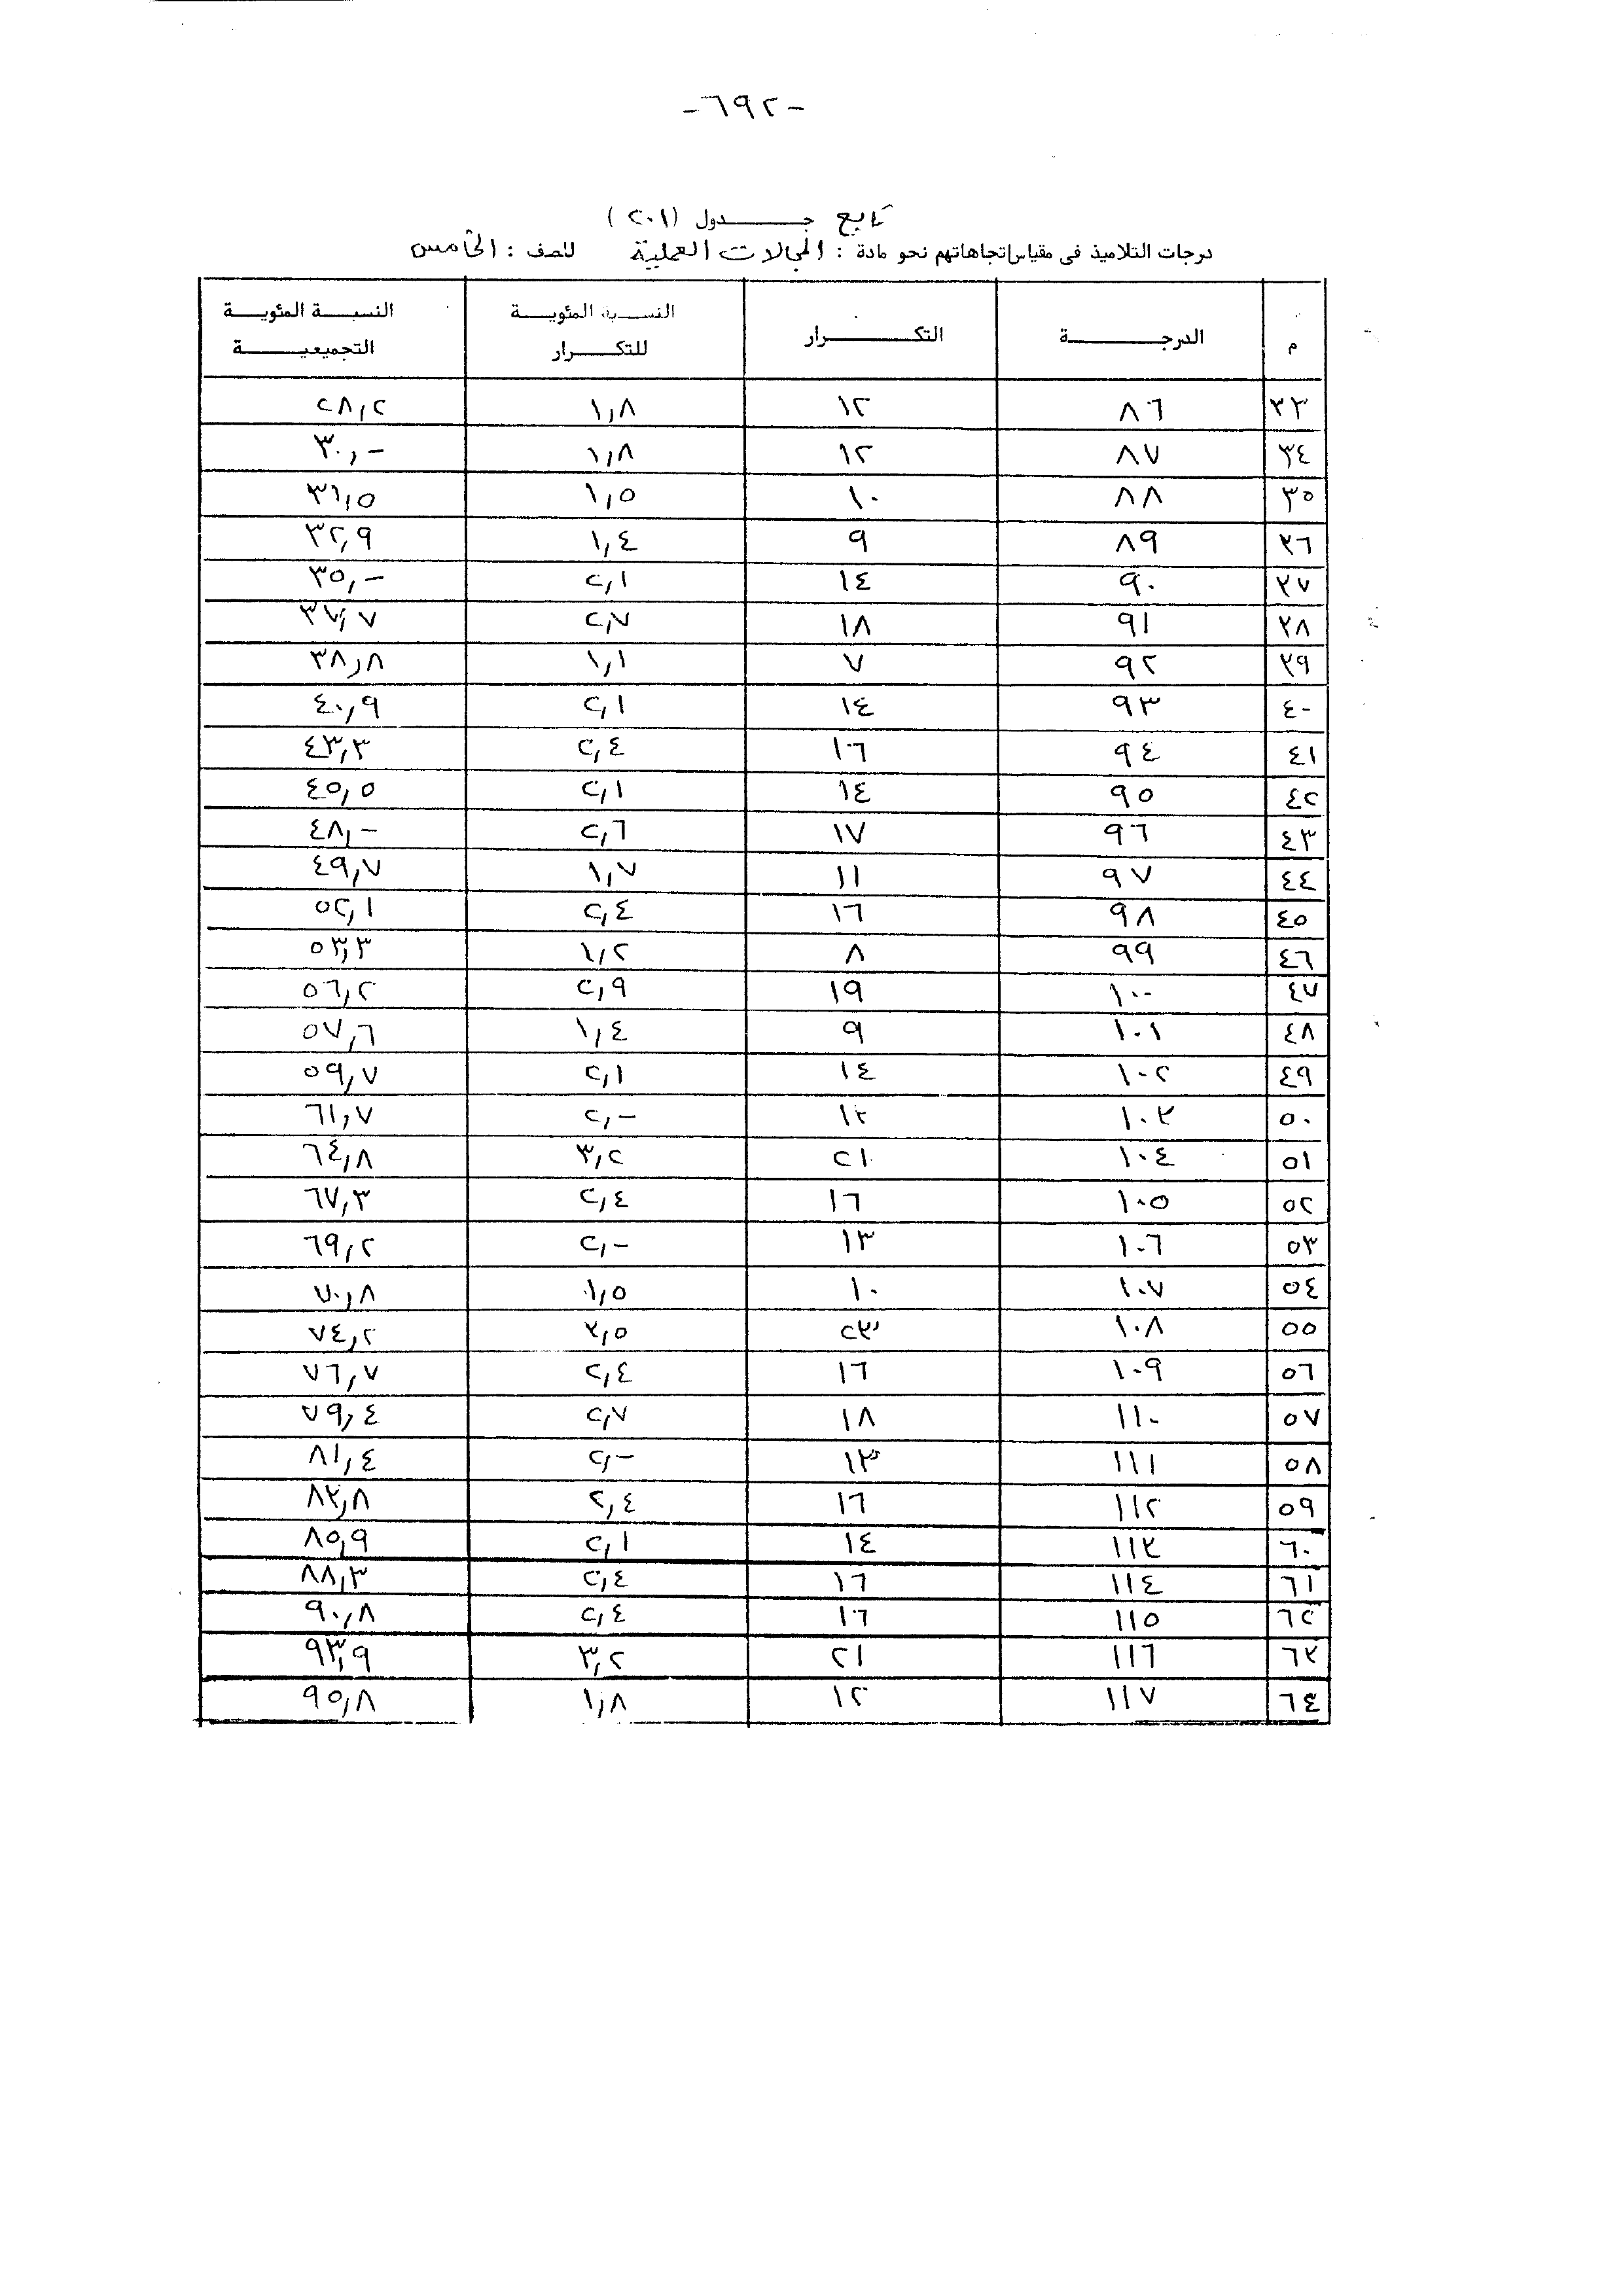 -٦٩٢-
تابع جدول (٢٠١)
درجات التلاميذ فى مقياس اتجاهاتهم نحو مادة : المجالات العملية للصف : الخامس
م الدرجة التكرار النسبة المئوية للتكرار النسبة المئوية التجميعية
٣٣ ٨٦ ١٢ ١,٨ ٢٨,٢
٣٤ ٨٧ ١٢ ١,٨ ٣٠,-
٣٥ ٨٨ ١٠ ١,٥ ٣١,٥
٣٦ ٨٩ ٩ ١,٤ ٣٢,٩
٣٧ ٩٠ ١٤ ٢,١ ٣٥,-
٣٨ ٩١ ١٨ ٢,٧ ٣٧,٧
٣٩ ٩٢ ٧ ١,١ ٣٨,٨
٤٠ ٩٣ ١٤ ٢,١ ٤٠,٩
٤١ ٩٤ ١٦ ٢,٤ ٤٣,٣
٤٢ ٩٥ ١٤ ٢,١ ٤٥,٥
٤٣ ٩٦ ١٧ ٢,٦ ٤٨,-
٤٤ ٩٧ ١١ ١,٧ ٤٩,٧
٤٥ ٩٨ ١٦ ٢,٤ ٥٢,١
٤٦ ٩٩ ٨ ١,٢ ٥٣,٣
٤٧ ١٠٠ ١٩ ٢,٩ ٥٦,٢
٤٨ ١٠١ ٩ ١,٤ ٥٧,٦
٤٩ ١٠٢ ١٤ ٢,١ ٥٩,٧
٥٠ ١٠٣ ١٣ ٢,- ٦١,٧
٥١ ١٠٤ ٢١ ٣,٢ ٦٤,٨
٥٢ ١٠٥ ١٦ ٢,٤ ٦٧,٣
٥٣ ١٠٦ ١٣ ٢,- ٦٩,٢
٥٤ ١٠٧ ١٠ ١,٥ ٧٠,٨
٥٥ ١٠٨ ٢٣ ٣,٥ ٧٤,٢
٥٦ ١٠٩ ١٦ ٢,٤ ٧٦,٧
٥٧ ١١٠ ١٨ ٢,٧ ٧٩,٤
٥٨ ١١١ ١٣ ٢,- ٨١,٤
٥٩ ١١٢ ١٦ ٢,٤ ٨٣,٨
٦٠ ١١٣ ١٤ ٢,١ ٨٥,٩
٦١ ١١٤ ١٦ ٢,٤ ٨٨,٣
٦٢ ١١٥ ١٦ ٢,٤ ٩٠,٨
٦٣ ١١٦ ٢١ ٣,٢ ٩٣,٩
٦٤ ١١٧ ١٢ ١,٨ ٩٥,٨